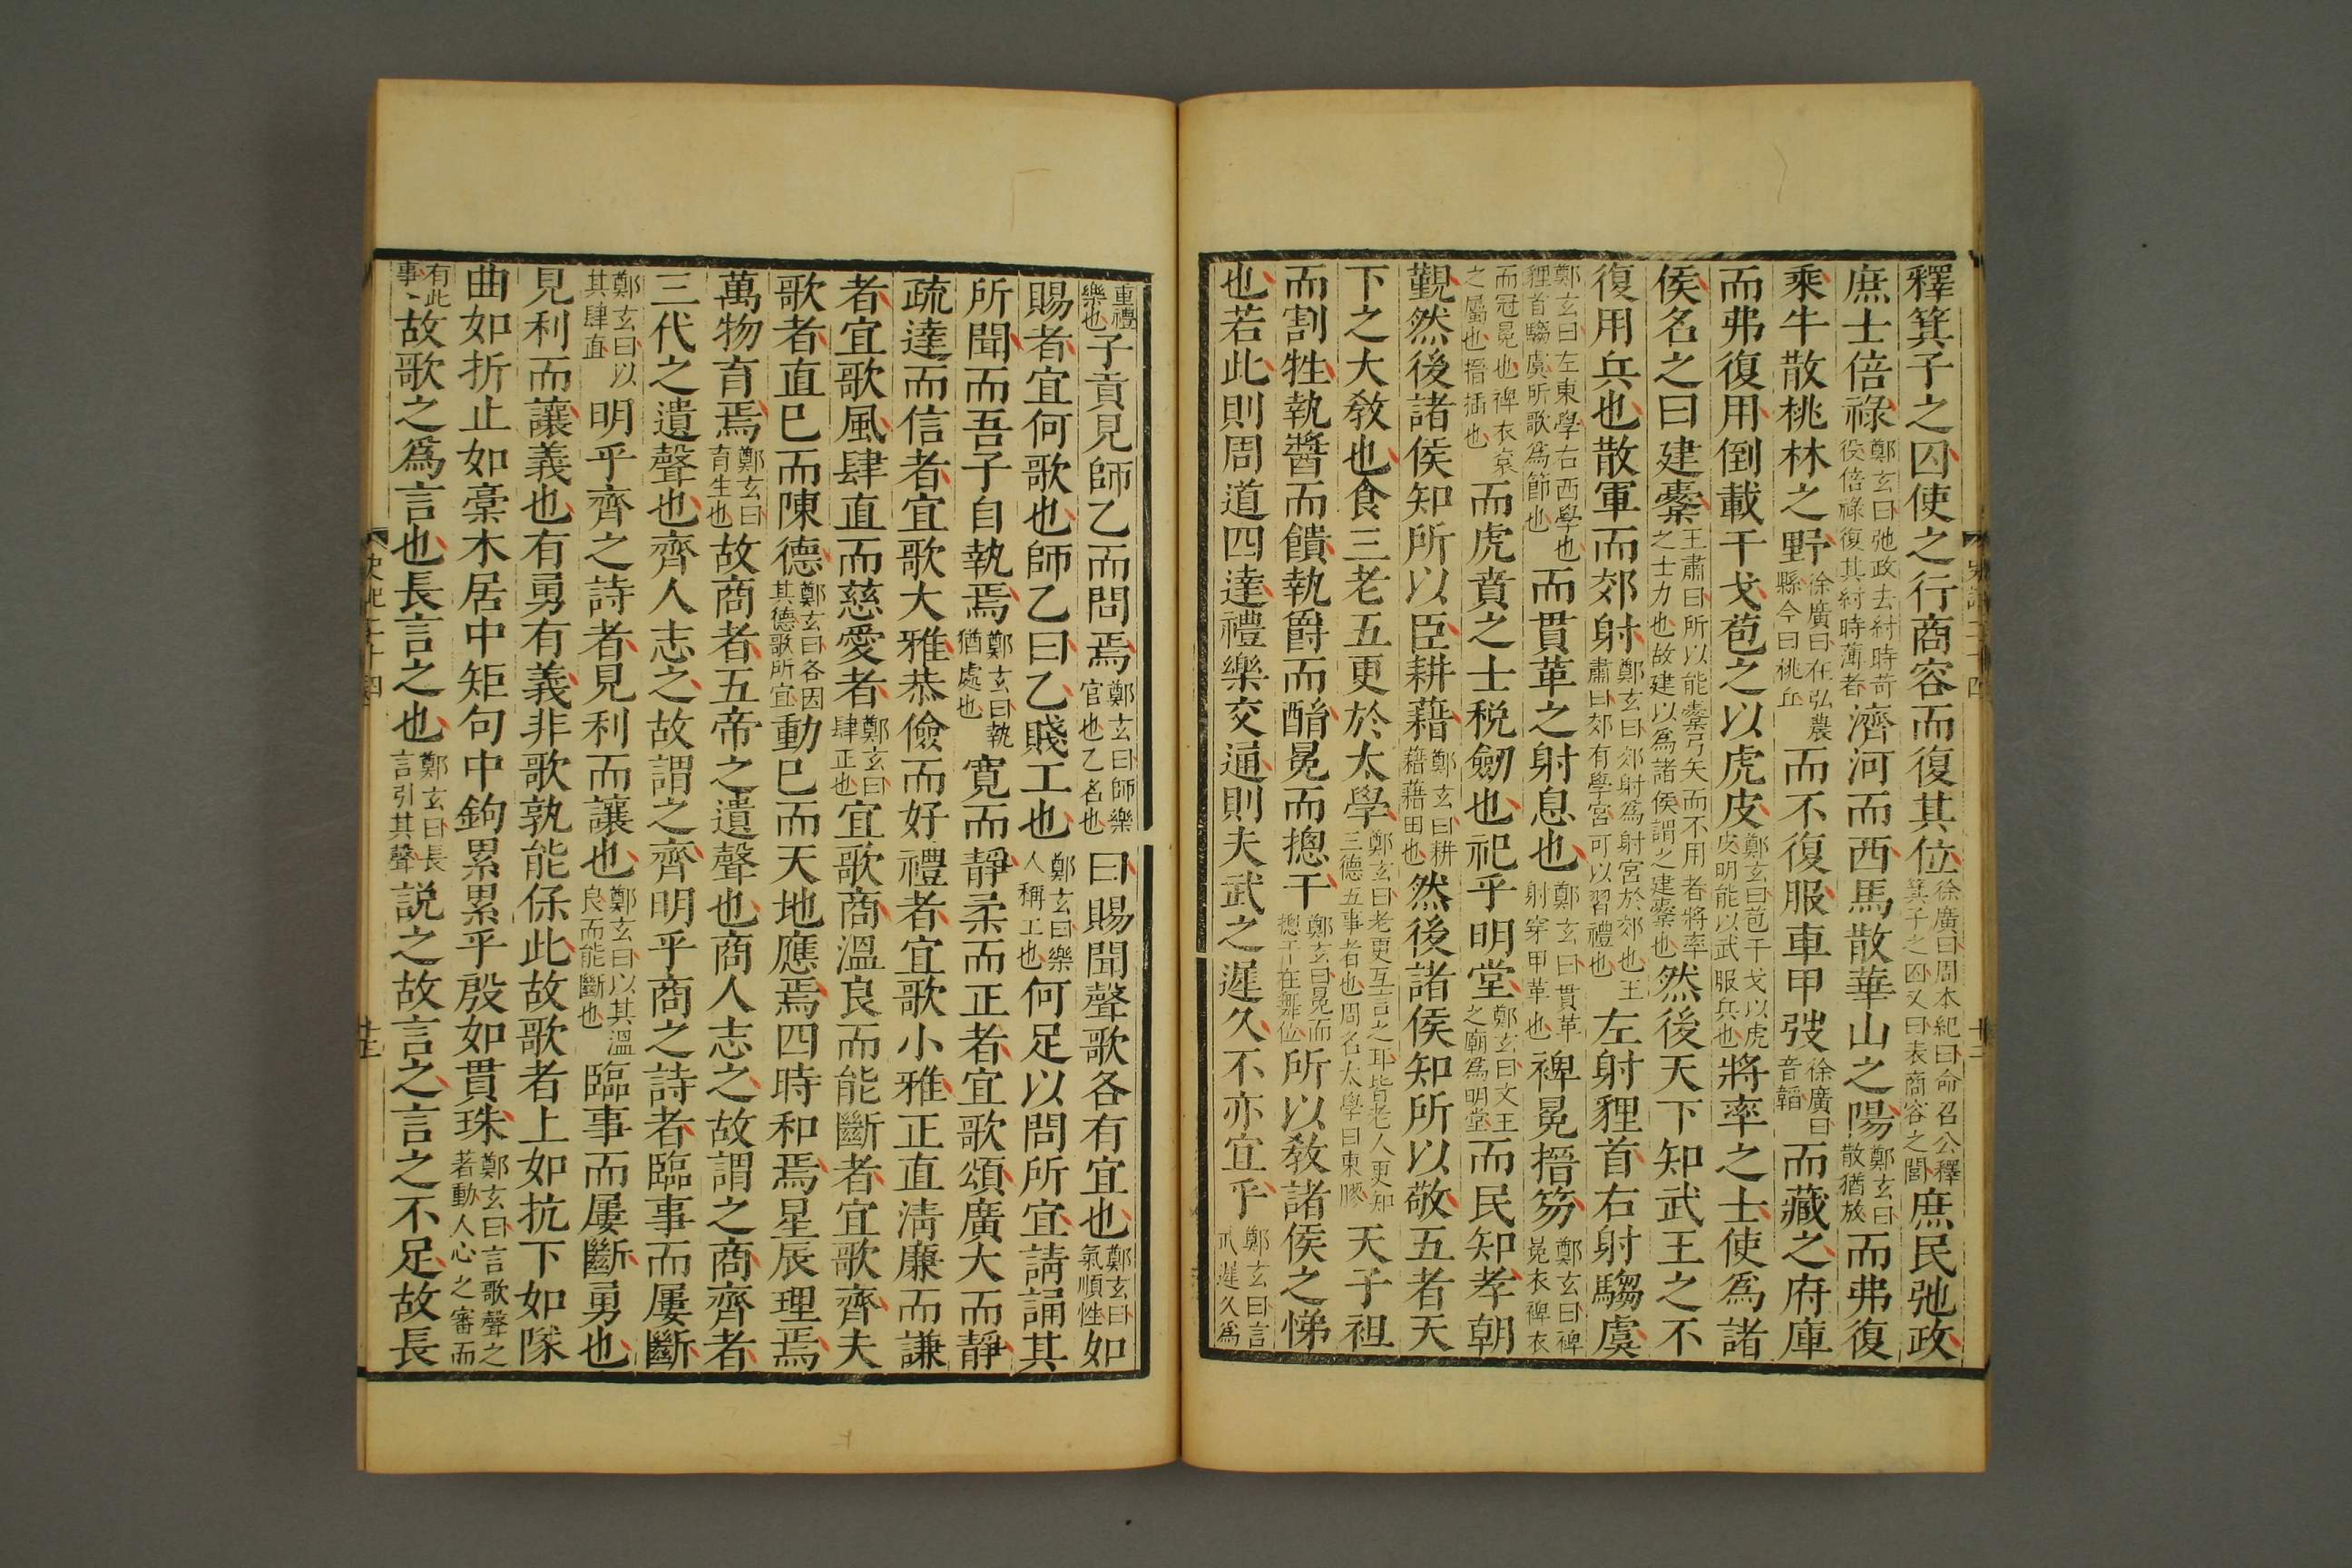 釋箕子之囚使之行商容而復其位徐廣曰周本紀曰命召公釋箕子之囚又曰表商容之閭庶民弛政
庶士倍祿鄭玄曰弛政去紂時苛役倍祿復其紂時薄者濟河而西馬散華山之陽鄭玄曰散猶放而弗復
乘牛散桃林之野徐廣曰在弘農縣今曰桃丘而不復服車甲弢徐廣曰音韜而藏之府庫
而弗復用倒載干戈苞之以虎皮鄭玄曰苞干戈以虎皮明能以武服兵也將率之士使爲諸
侯名之曰建櫜王肅曰所以能櫜弓矢而不用者將率之士力也故建以爲諸侯謂之建櫜也然後天下知武王之不
復用兵也散軍而郊射鄭玄曰郊射爲射宮於郊也王肅曰郊有學宮可以習禮也左射貍首右射騶虞
鄭玄曰左東學右西學也貍首騶虞所歌爲節也而貫革之射息也鄭玄曰貫革射穿甲革也裨冕搢笏鄭玄曰裨冕衣裨衣
而冠冕也裨衣衮之屬也搢插也而虎賁之士税劒也祀乎明堂鄭玄曰文王之廟爲明堂而民知孝朝
覲然後諸侯知所以臣耕藉鄭玄曰耕藉藉田也然後諸侯知所以敬五者天
下之大敎也食三老五更於太學鄭玄曰老更互言之耳皆老人更知三德五事者也周名太學曰東膠天子袒
而割牲執醬而饋執爵而酳冕而摠干鄭玄曰冕而摠干在舞位所以敎諸侯之悌
也若此則周道四達禮樂交通則夫武之遲久不亦宜乎鄭玄曰言武遲久爲
重禮樂也子貢見師乙而問焉鄭玄曰師樂官也乙名也曰賜聞聲歌各有宜也鄭玄曰氣順性如
賜者宜何歌也師乙曰乙賤工也鄭玄曰樂人稱工也何足以問所宜請誦其
所聞而吾子自執焉鄭玄曰執猶處也寬而靜柔而正者宜歌頌廣大而靜
疏達而信者宜歌大雅恭儉而好禮者宜歌小雅正直淸廉而謙
者宜歌風肆直而慈愛者鄭玄曰肆正也宜歌商溫良而能斷者宜歌齊夫
歌者直已而陳德鄭玄曰各因其德歌所宜動已而天地應焉四時和焉星辰理焉
萬物育焉鄭玄曰育生也故商者五帝之遺聲也商人志之故謂之商齊者
三代之遺聲也齊人志之故謂之齊明乎商之詩者臨事而屢斷
鄭玄曰以其肆直明乎齊之詩者見利而讓也鄭玄曰以其溫良而能斷也臨事而屢斷勇也
見利而讓義也有勇有義非歌孰能保此故歌者上如抗下如隊
曲如折止如槀木居中矩句中鉤累累乎殷如貫珠鄭玄曰言歌聲之著動人心之審而
有此事故歌之爲言也長言之也鄭玄曰長言引其聲說之故言之言之不足故長